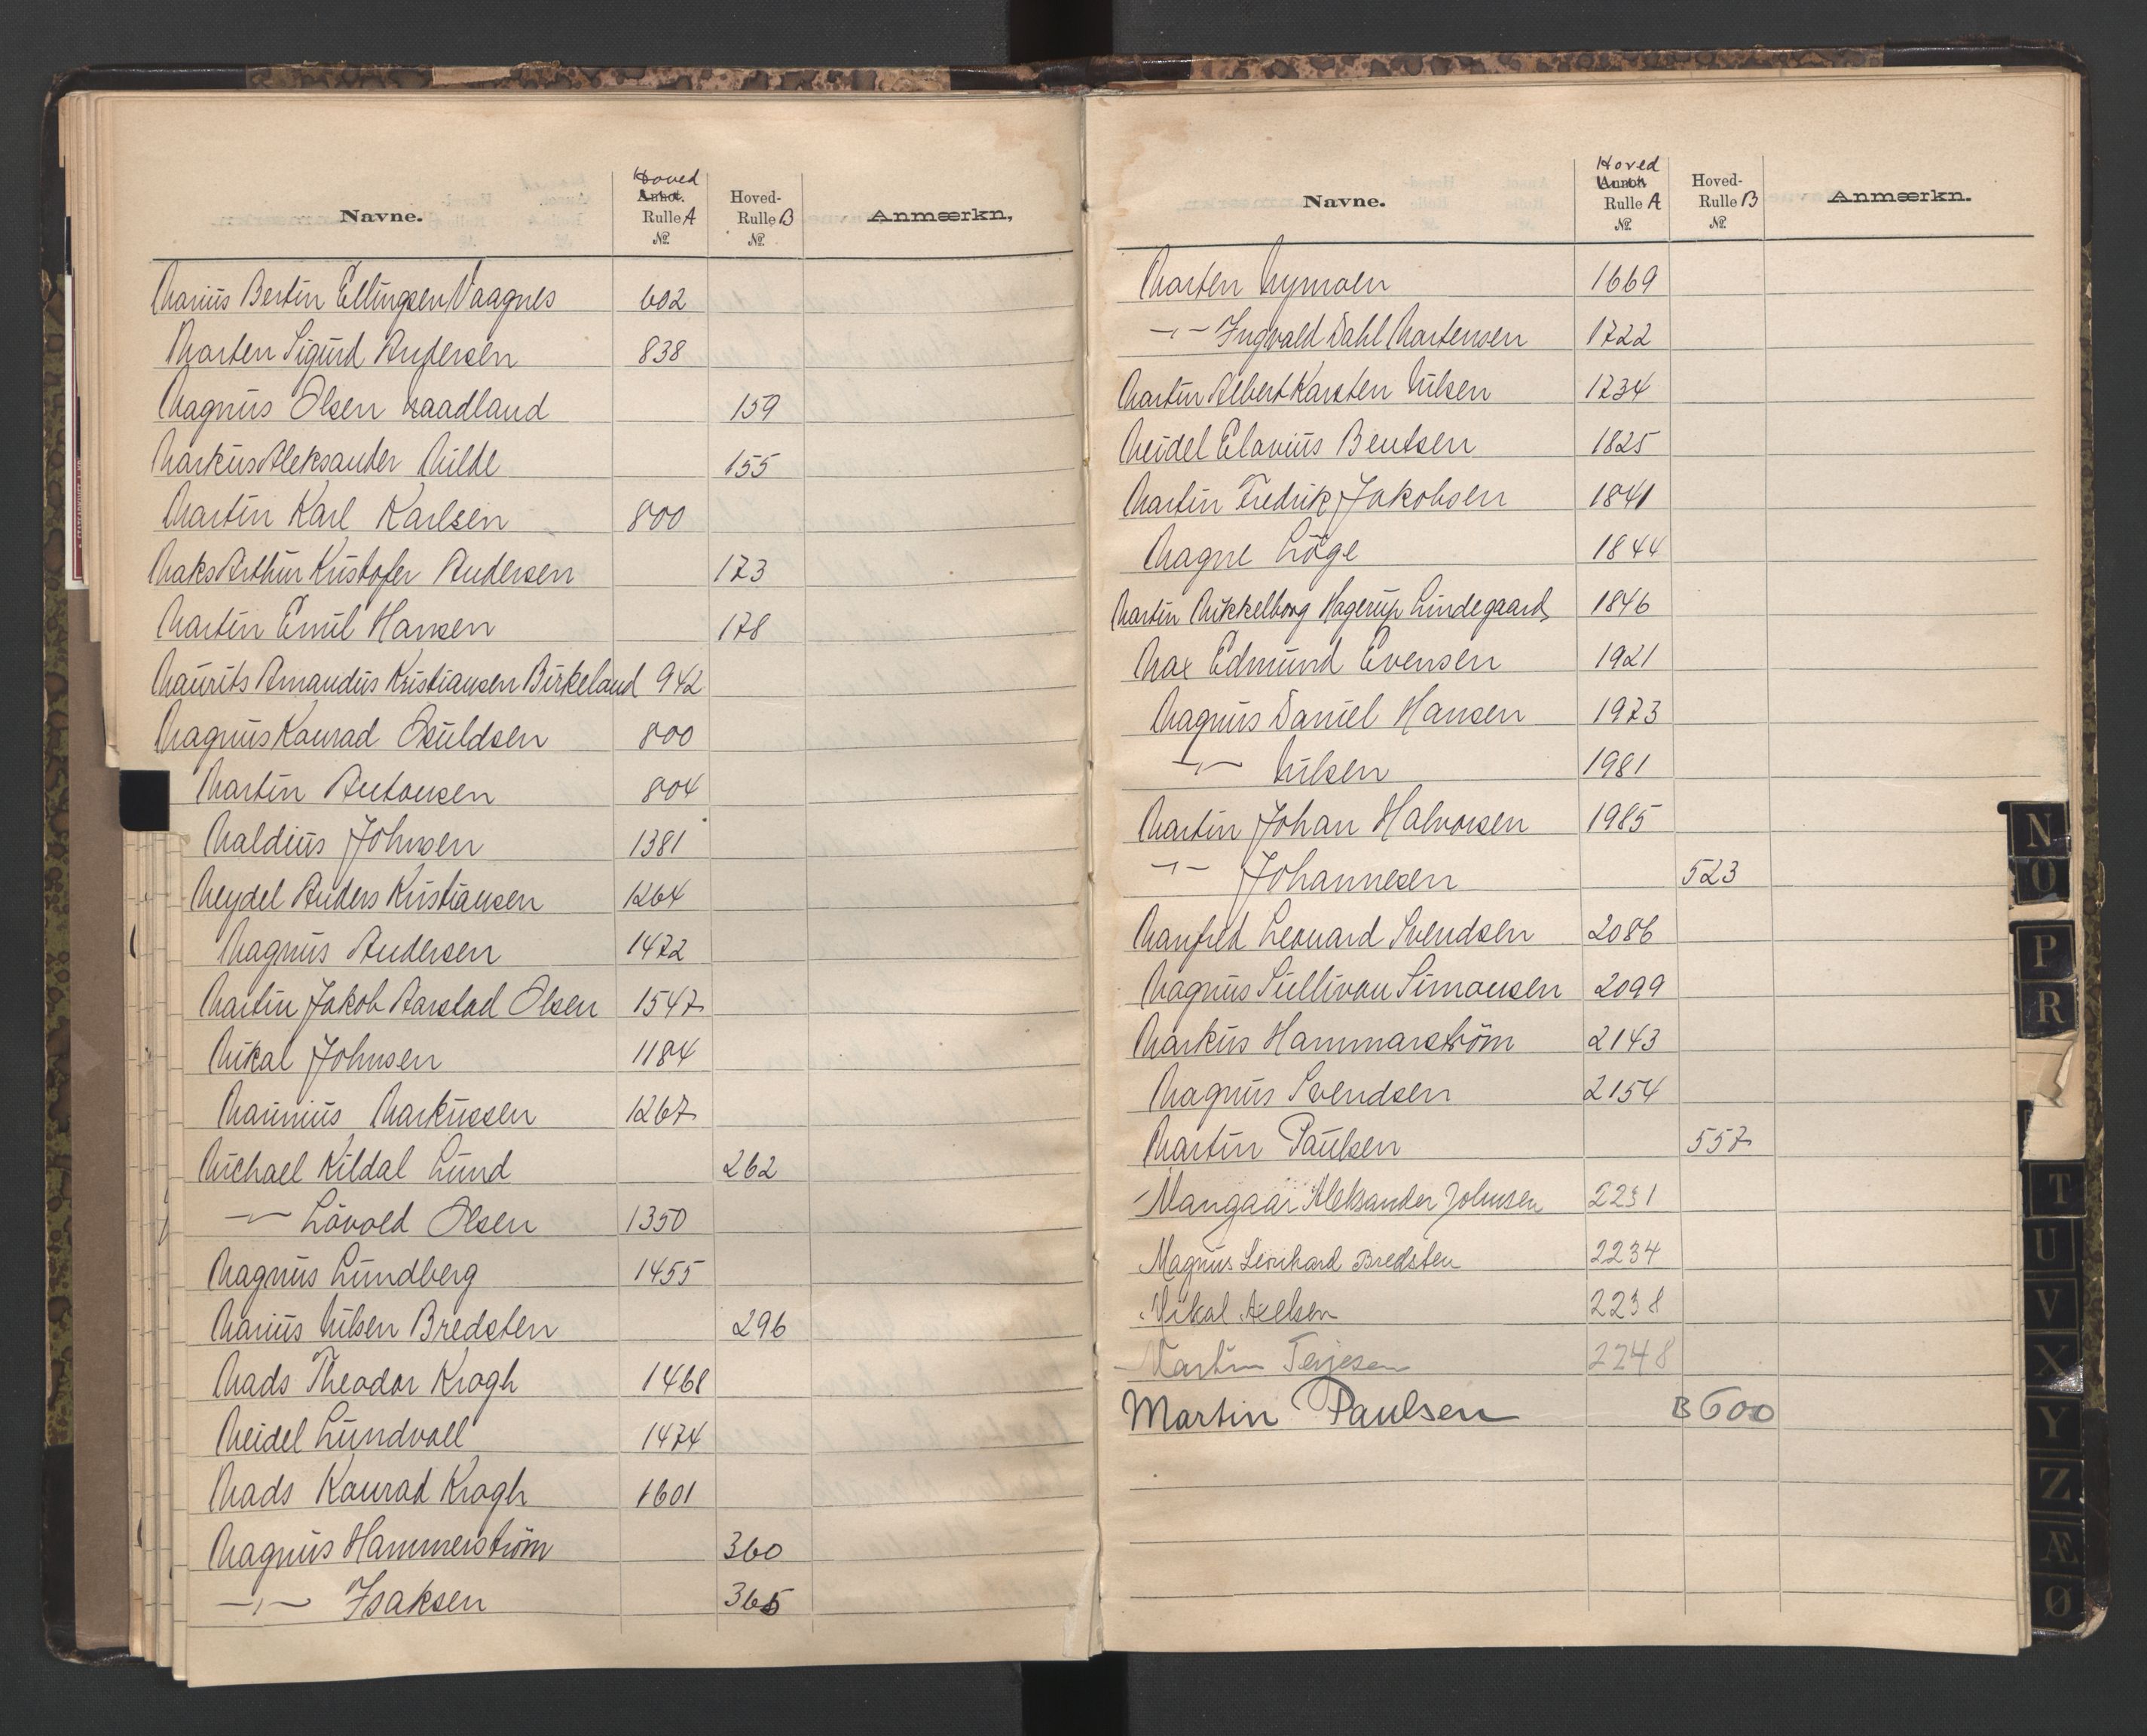 Navne. Hoved Annot. Rulle A № Hoved-Rulle B № Anmærkn.
Marius Bertin Ellingsen Vaagnes 602
Morten Sigurd Andersen 838
Magnus Olsen Raadland 159
Markus Aleksander Milde 155
Martin Karl Karlsen 800
Maks Arthur Kristofer Andersen 173
Martin Emil Hansen 178
Maurits Amandus Kristiansen Birkeland 942
Magnus Konrad Osuldsen 800
Martin Antonsen 804
Maldius Johnsen 1381
Meydel Anders Kristiansen 1264
Magnus Andersen 1472
Martin Jakob Aarstad Olsen 1547
Mikal Johnsen 1184
Maurius Markussen 1267
Michael Kildal Lund 262
-"- Lövold Olsen 1350
Magnus Lundberg 1455
Marius Nilsen Bredsten 296
Mads Theodor Krogh 1468
Meidel Lundvoll 1474
Mads Konrad Krogh 1601
Magnus Hammerström 360
-"- Isaksen 365
Navne. Hoved Annot. Rulle A № Hoved-Rulle B № Anmærkn.
Morten Nymoen 1669
-"- Ingvald Dahl Mortensen 1722
Martin Albert Karsten Nilsen 1734
Meidel Elovius Bentsen 1825
Martin Fredrik Jakobsen 1841
Magne Löge 1844
Martin Mikkelborg Hagerup Lindegaard 1846
Max Edmund Evensen 1921
Magnus Daniel Hansen 1973
-"- Nilsen 1981
Martin Johan Halvorsen 1985
-"- Johannesen 523
Manfred Leonard Svendsen 2086
Magnus Sullivan Simonsen 2099
Markus Hammarström 2143
Magnus Svendsen 2154
Martin Paulsen 557
Mangaar Aleksander Johnsen 2231
Magnus Leonhard Bredsten 2234
Mikal Axelsen 2238
Martin Terjesen 2248
Martin Paulsen B 600
N
O
P
R
T
U
V
X
Y
Z
Æ
Ø